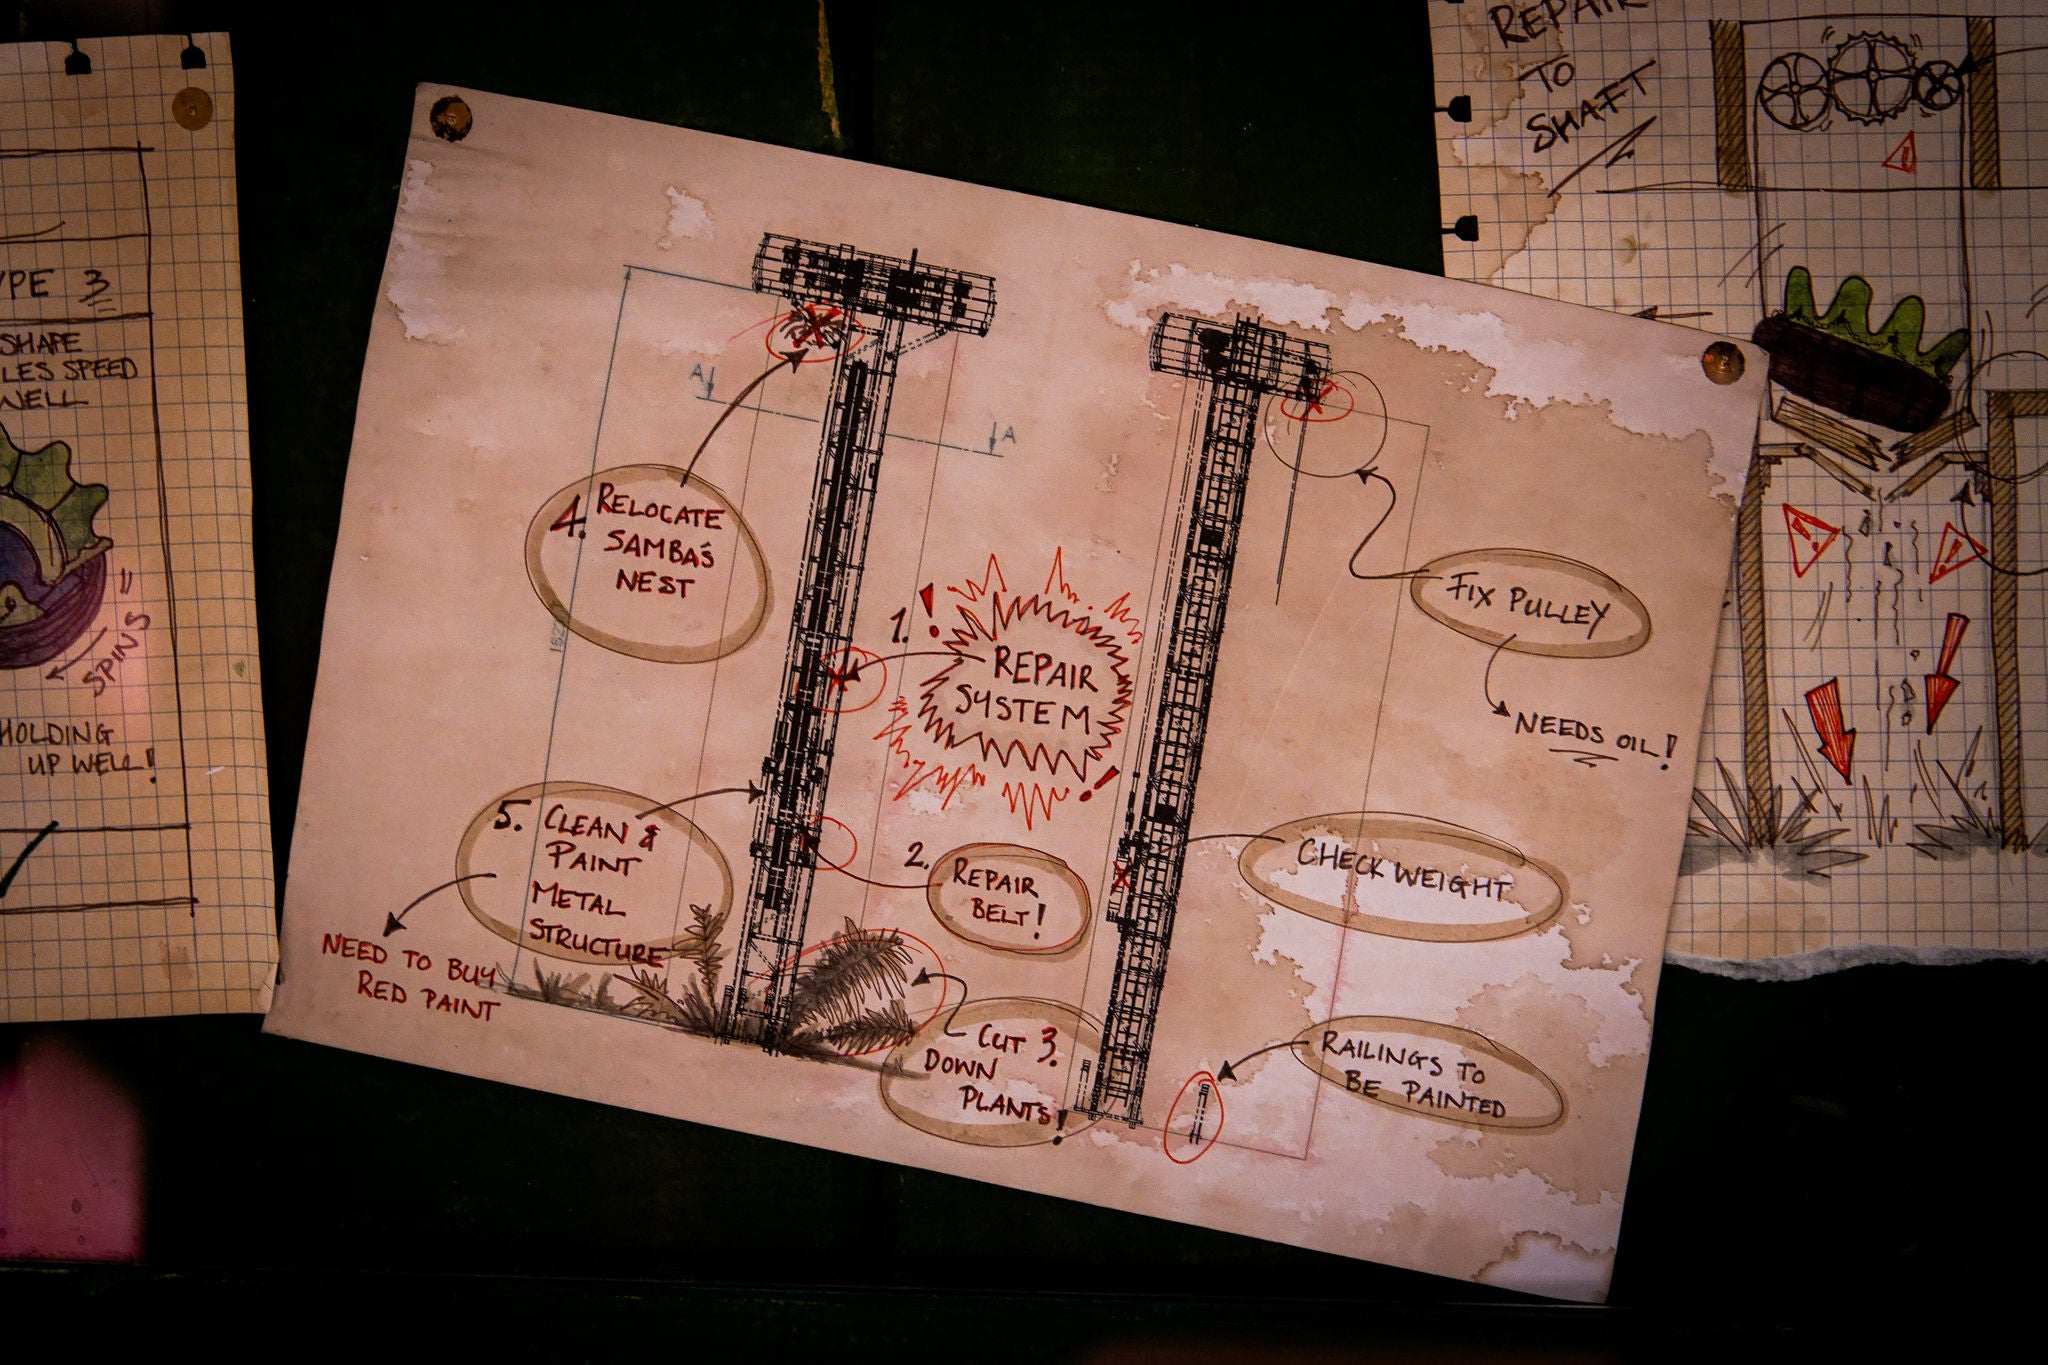 YPE 3
SHAPE
LES SPEED
WELL
SPINS
HOLDING
UP WELL!
A
A
4. RELOCATE
SAMBA'S
NEST
1. !
REPAIR
SYSTEM
!
5. CLEAN &
PAINT
METAL
STRUCTURE
NEED TO BUY
RED PAINT
2. REPAIR
BELT!
CUT 3.
DOWN
PLANTS!
FIX PULLEY
NEEDS OIL!
CHECK WEIGHT
RAILINGS TO
BE PAINTED
REPAIR
TO
SHAFT
!
!
!